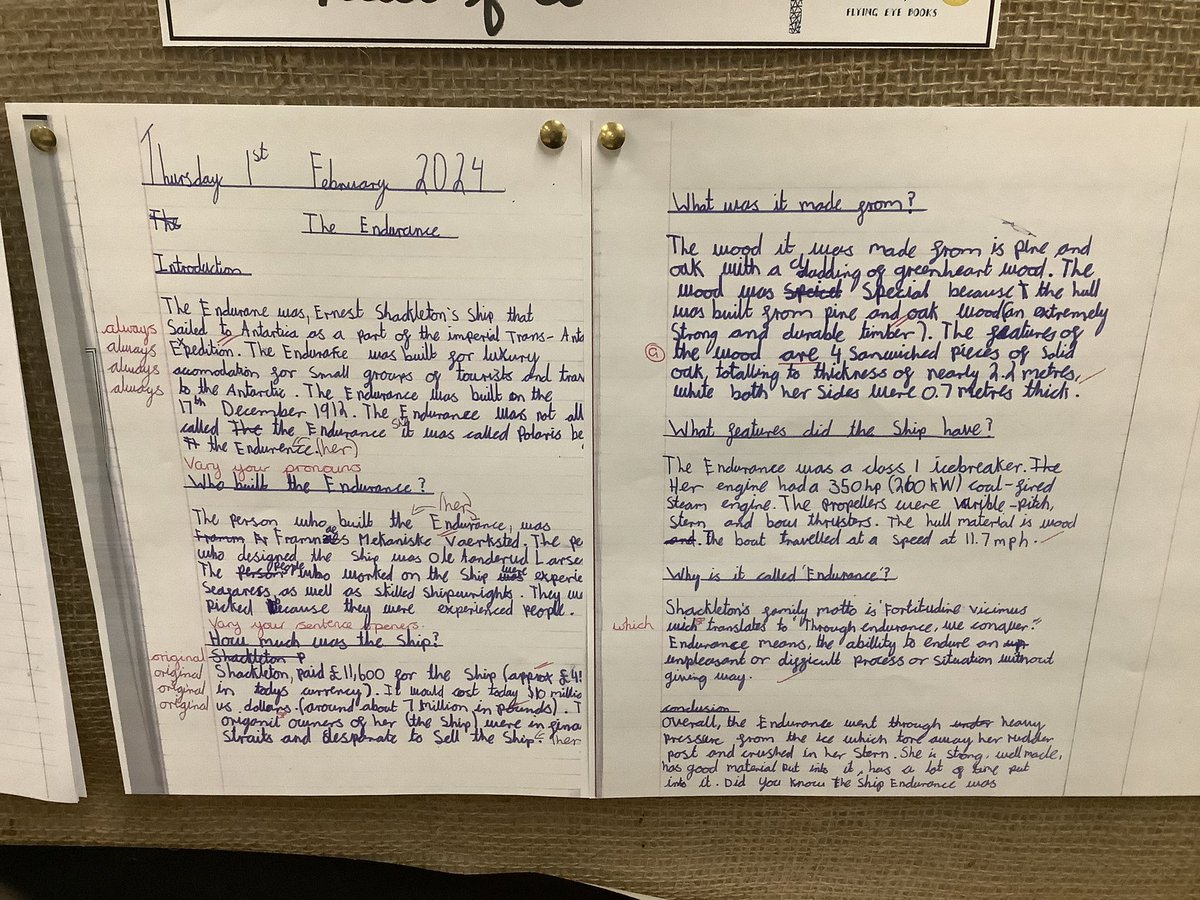 FLYING EYE BOOKS
Thursday 1st February 2024
The
The Endurance
Introduction
The Endurane was, Ernest Shackleton's Ship that
always Sailed to Antartia as a part of the imperial Trans- Anta
always Expedition. The Endurake was built for luxury
always accomodation for small groups of tourists and trav
always to the Antarctic. The Endurance was built on the
17th December 1912. The Endurance was not all
called The the Endurance it was called Polaris be
the Endurence. (her)
Vary your pronouns
Who built the Endurance?
(her)
The person who built the Endurance, was
Framm Fr Framnæs Mekaniske Vaerksted. The pe
who designed the Ship was Ole Aanderud Larse
The person people who worked on the Ship was were experie
Seagarers, as well as skilled Shipwrights. They we
Picked because they were experienced people.
Vary your sentence openers.
How much was the Ship?
original Shackleton P
original Shackleton, paid £11,600 for the Ship (approx £4
original in todys currency). It would cost today $10 millio
original us dollars (around about 7 million in pounds). T
organil owners of her (the Ship) were in fina
Straits and desperate to Sell the Ship. (her
What was it made from?
The wood it was made from is pine and
oak with a cladding of greenheart wood. The
wood was Speicel Special because the hull
was built from pine and oak wood (an extremely
Strong and durable timber). The features of
the wood are 4 Sanwiched pieces of Solid
oak, totalling to thickness of nearly 2.2 metres,
white both her Sides were 0.7 metres thick.
What features did the Ship have?
The Endurance was a class 1 icebreaker. The
Her engine had a 350hp (260 kW) coal-fired
Steam engine. The propellers were Varible-pitch,
Stern and bow thrusters. The hull material is wood
and. The boat travelled at a speed at 11.7 mph.
Why is it called 'Endurance'?
Shackleton's family motto is 'Fortitudine vicimus
which wich translates to "Through endurance, we conquer."
Endurance means, the abillity to endure an up
unpleasant or difficult process or situation without
giving way.
conclusion
Overall, the Endurance went through heavy
Pressure from the ice which tore away her rudder
post and crushed in her Stern. She is strong, well made,
has good material put into it, has a lot of time put
into it. Did you know the Ship Endurance was